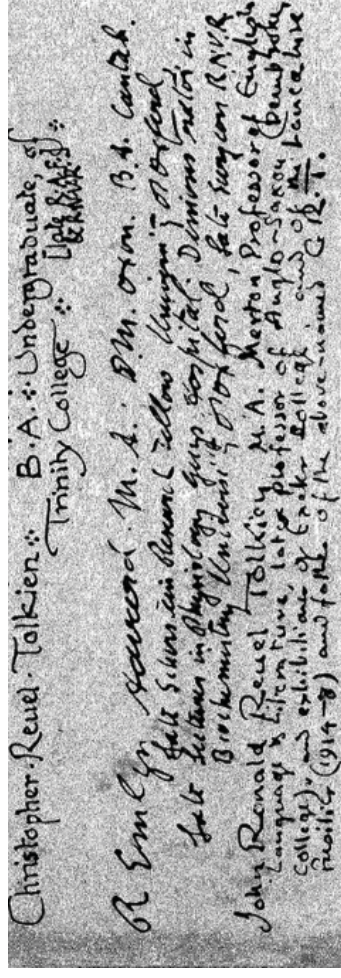 Christopher Reuel Tolkien ∴ B.A. ∴ Undergraduate, of
Trinity College ∴ [late R.A.F.] & R.N.V.R.
R Emlyn Havard. M.A. D.M. oxon. B.A. Cantab.
late Research Fellow Univ. Oxford
late Lecturer in Physiology Guys Hospital. Demonstrator in
Biochemistry University of Oxford, late Surgeon RNVR
John Ronald Reuel Tolkien M.A. Merton Professor of English
Language & Literature, late professor of Anglo-Saxon (Pembroke
College), and exhibitioner of Exeter College, and of the Lancashire
Fusiliers (1914-8) and father of the above-named C.R.T.